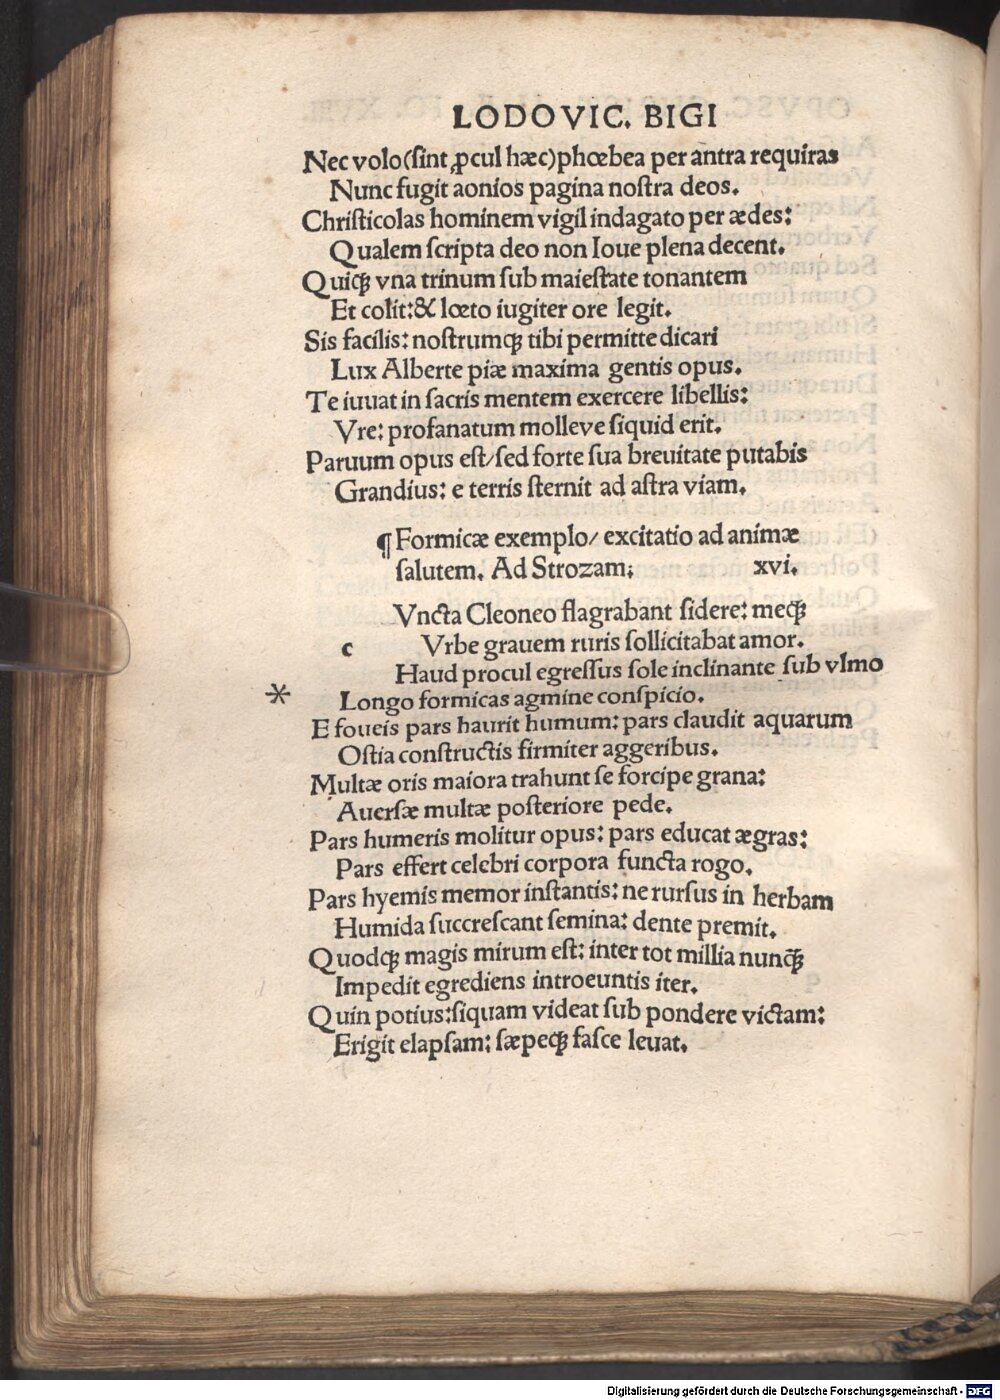 LODOVIC. BIGI
Nec volo(ſint ꝓcul hæc)phœbea per antra requiras
Nunc fugit aonios pagina noſtra deos.
Chriſticolas hominem vigil indagato per ædes:
Qualem ſcripta deo non Ioue plena decent.
Quicꝫ vna trinum ſub maieſtate tonantem
Et colit:& lœto iugiter ore legit.
Sis facilis: noſtrumcꝫ tibi permitte dicari
Lux Alberte piæ maxima gentis opus.
Te iuuat in ſacris mentem exercere libellis:
Vre: profanatum molleve ſiquid erit.
Paruum opus eſt/ſed forte ſua breuitate putabis
Grandius: e terris ſternit ad aſtra viam.
¶Formicæ exemplo/ excitatio ad animæ
ſalutem. Ad Strozam: xvi.
Vncta Cleoneo flagrabant ſidere: mecꝫ
c Vrbe grauem ruris ſollicitabat amor.
Haud procul egreſſus ſole inclinante ſub vlmo
* Longo formicas agmine conſpicio.
E foueis pars haurit humum: pars claudit aquarum
Oſtia conſtructis firmiter aggeribus.
Multæ oris maiora trahunt ſe forcipe grana:
Auerſæ multæ poſteriore pede.
Pars humeris molitur opus: pars educat ægras:
Pars effert celebri corpora functa rogo.
Pars hyemis memor inſtantis: ne rurſus in herbam
Humida ſuccreſcant ſemina: dente premit.
Quodcꝫ magis mirum eſt: inter tot millia nuncꝫ̃
Impedit egrediens introeuntis iter.
Quin potius:ſiquam videat ſub pondere victam:
Erigit elapſam: ſæpecꝫ faſce leuat.
Digitalisierung gefördert durch die Deutsche Forschungsgemeinschaft - DFG